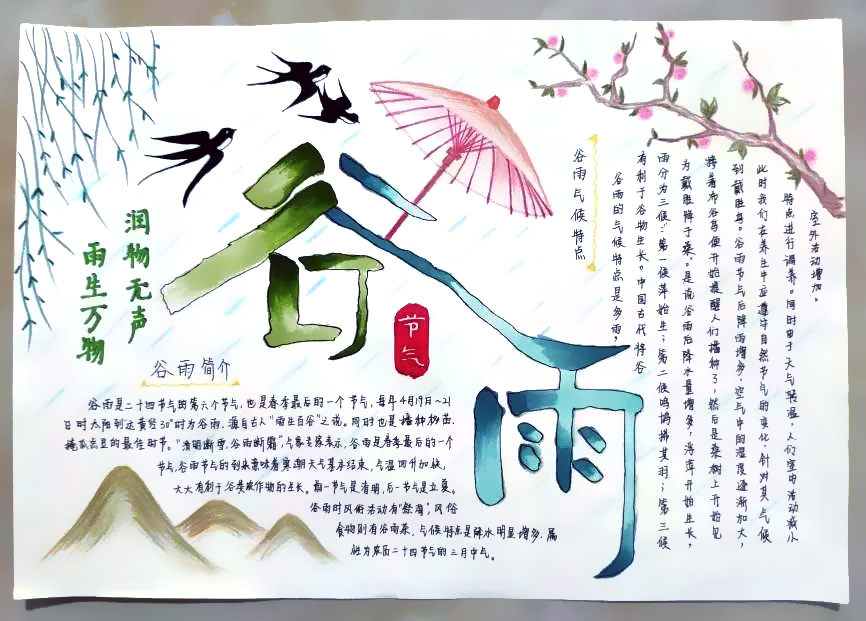 谷雨
节气
润物无声
雨生万物
谷雨简介
谷雨是二十四节气的第六个节气，也是春季最后的一个节气，每年4月19日～21
日时太阳到达黄经30°时为谷雨，源自古人"雨生百谷"之说。同时也是播种移苗、
埯瓜点豆的最佳时节。"清明断雪，谷雨断霜"，气象专家表示，谷雨是春季最后的一个
节气，谷雨节气的到来意味着寒潮天气基本结束，气温回升加快，
大大有利于谷类农作物的生长。前一节气是清明，后一节气是立夏。
谷雨时风俗活动有"祭海"，风俗
食物则有谷雨茶，气候特点是降水明显增多，属
性为农历二十四节气的三月中气。
谷雨气候特点
谷雨的气候特点是多雨，
有利于谷物生长。中国古代将谷
雨分为三候："第一候萍始生；第二候鸣鸠拂其羽；第三候
为戴胜降于桑。"是说谷雨后降水量增多，浮萍开始生长，
接着布谷鸟便开始提醒人们播种了，然后是桑树上开始见
到戴胜鸟。谷雨节气后降雨增多，空气中的湿度逐渐加大，
此时我们在养生中应遵守自然节气的变化，针对其气候
特点进行调养。同时由于天气转温，人们室内活动减少
室外活动增加。